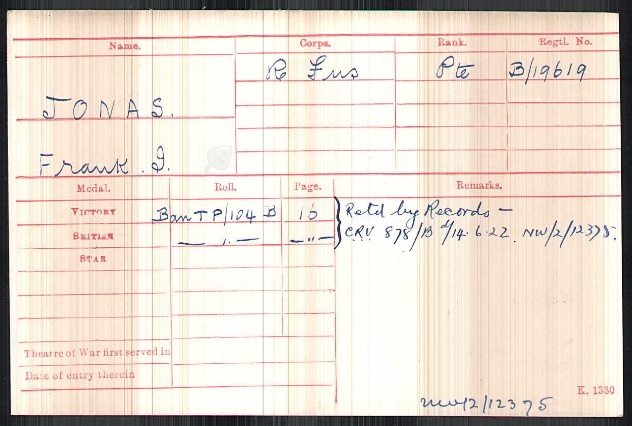 Name. Corps. Rank. Regtl. No.
R Fus Pte B/19619
JONAS.
Frank. I.
Medal. Roll. Page. Remarks.
VICTORY Ban TP/104 B 16 Retd by Records —
BRITISH — " — — " — CRV 878/B d/14.6.22. NW/2/12375.
STAR
Theatre of War first served in
Date of entry therein
K. 1380
NW/2/12375